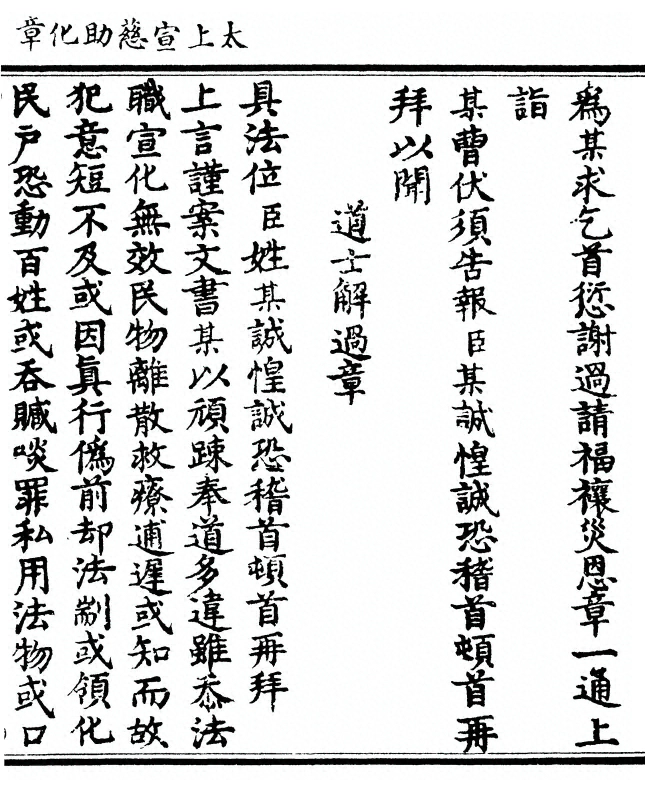 太上宣慈助化章
為某求乞首愆謝過請福禳災恩章一通上
詣
某曹伏須告報臣某誠惶誠恐稽首頓首再
拜以聞
道士解過章
具法位臣姓某誠惶誠恐稽首頓首再拜
上言謹案文書某以頑踈奉道多違雖忝法
職宣化無效民物離散救療逋遲或知而故
犯意短不及或因真行偽前却法劄或領化
民戶恐動百姓或吞贓啖罪私用法物或口